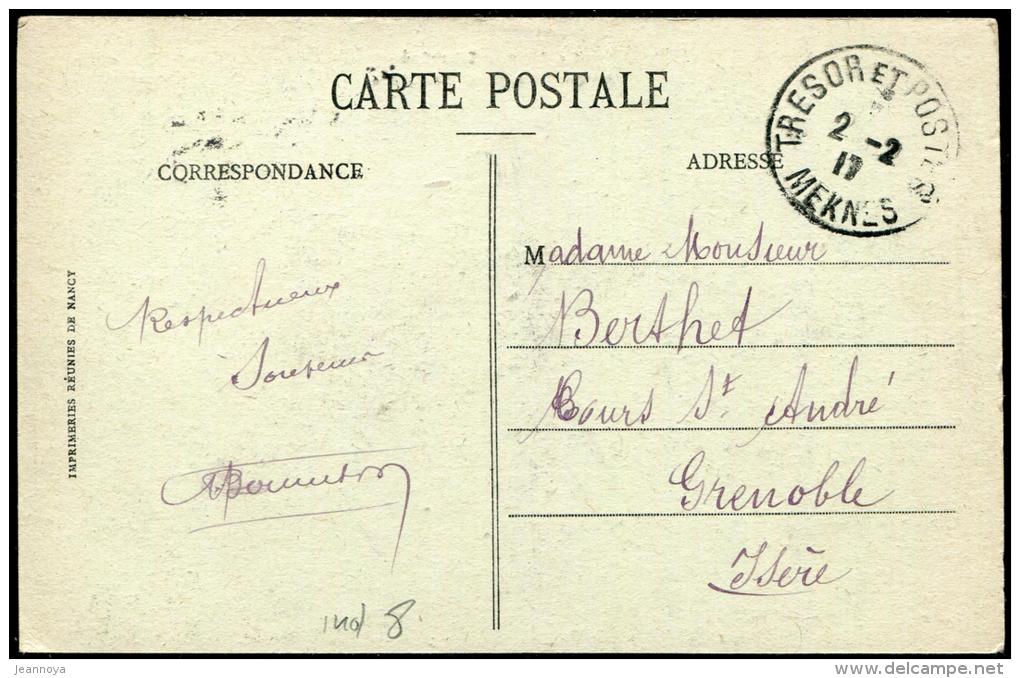 CARTE POSTALE
CORRESPONDANCE
ADRESSE
TRESOR ET POSTES
2 -2
17
MEKNES
IMPRIMERIES RÉUNIES DE NANCY
Respectueux
Souvenir
Madame Monsieur
Berthet
Cours St André
Grenoble
Isère
8
jeannoya
delcampe.net